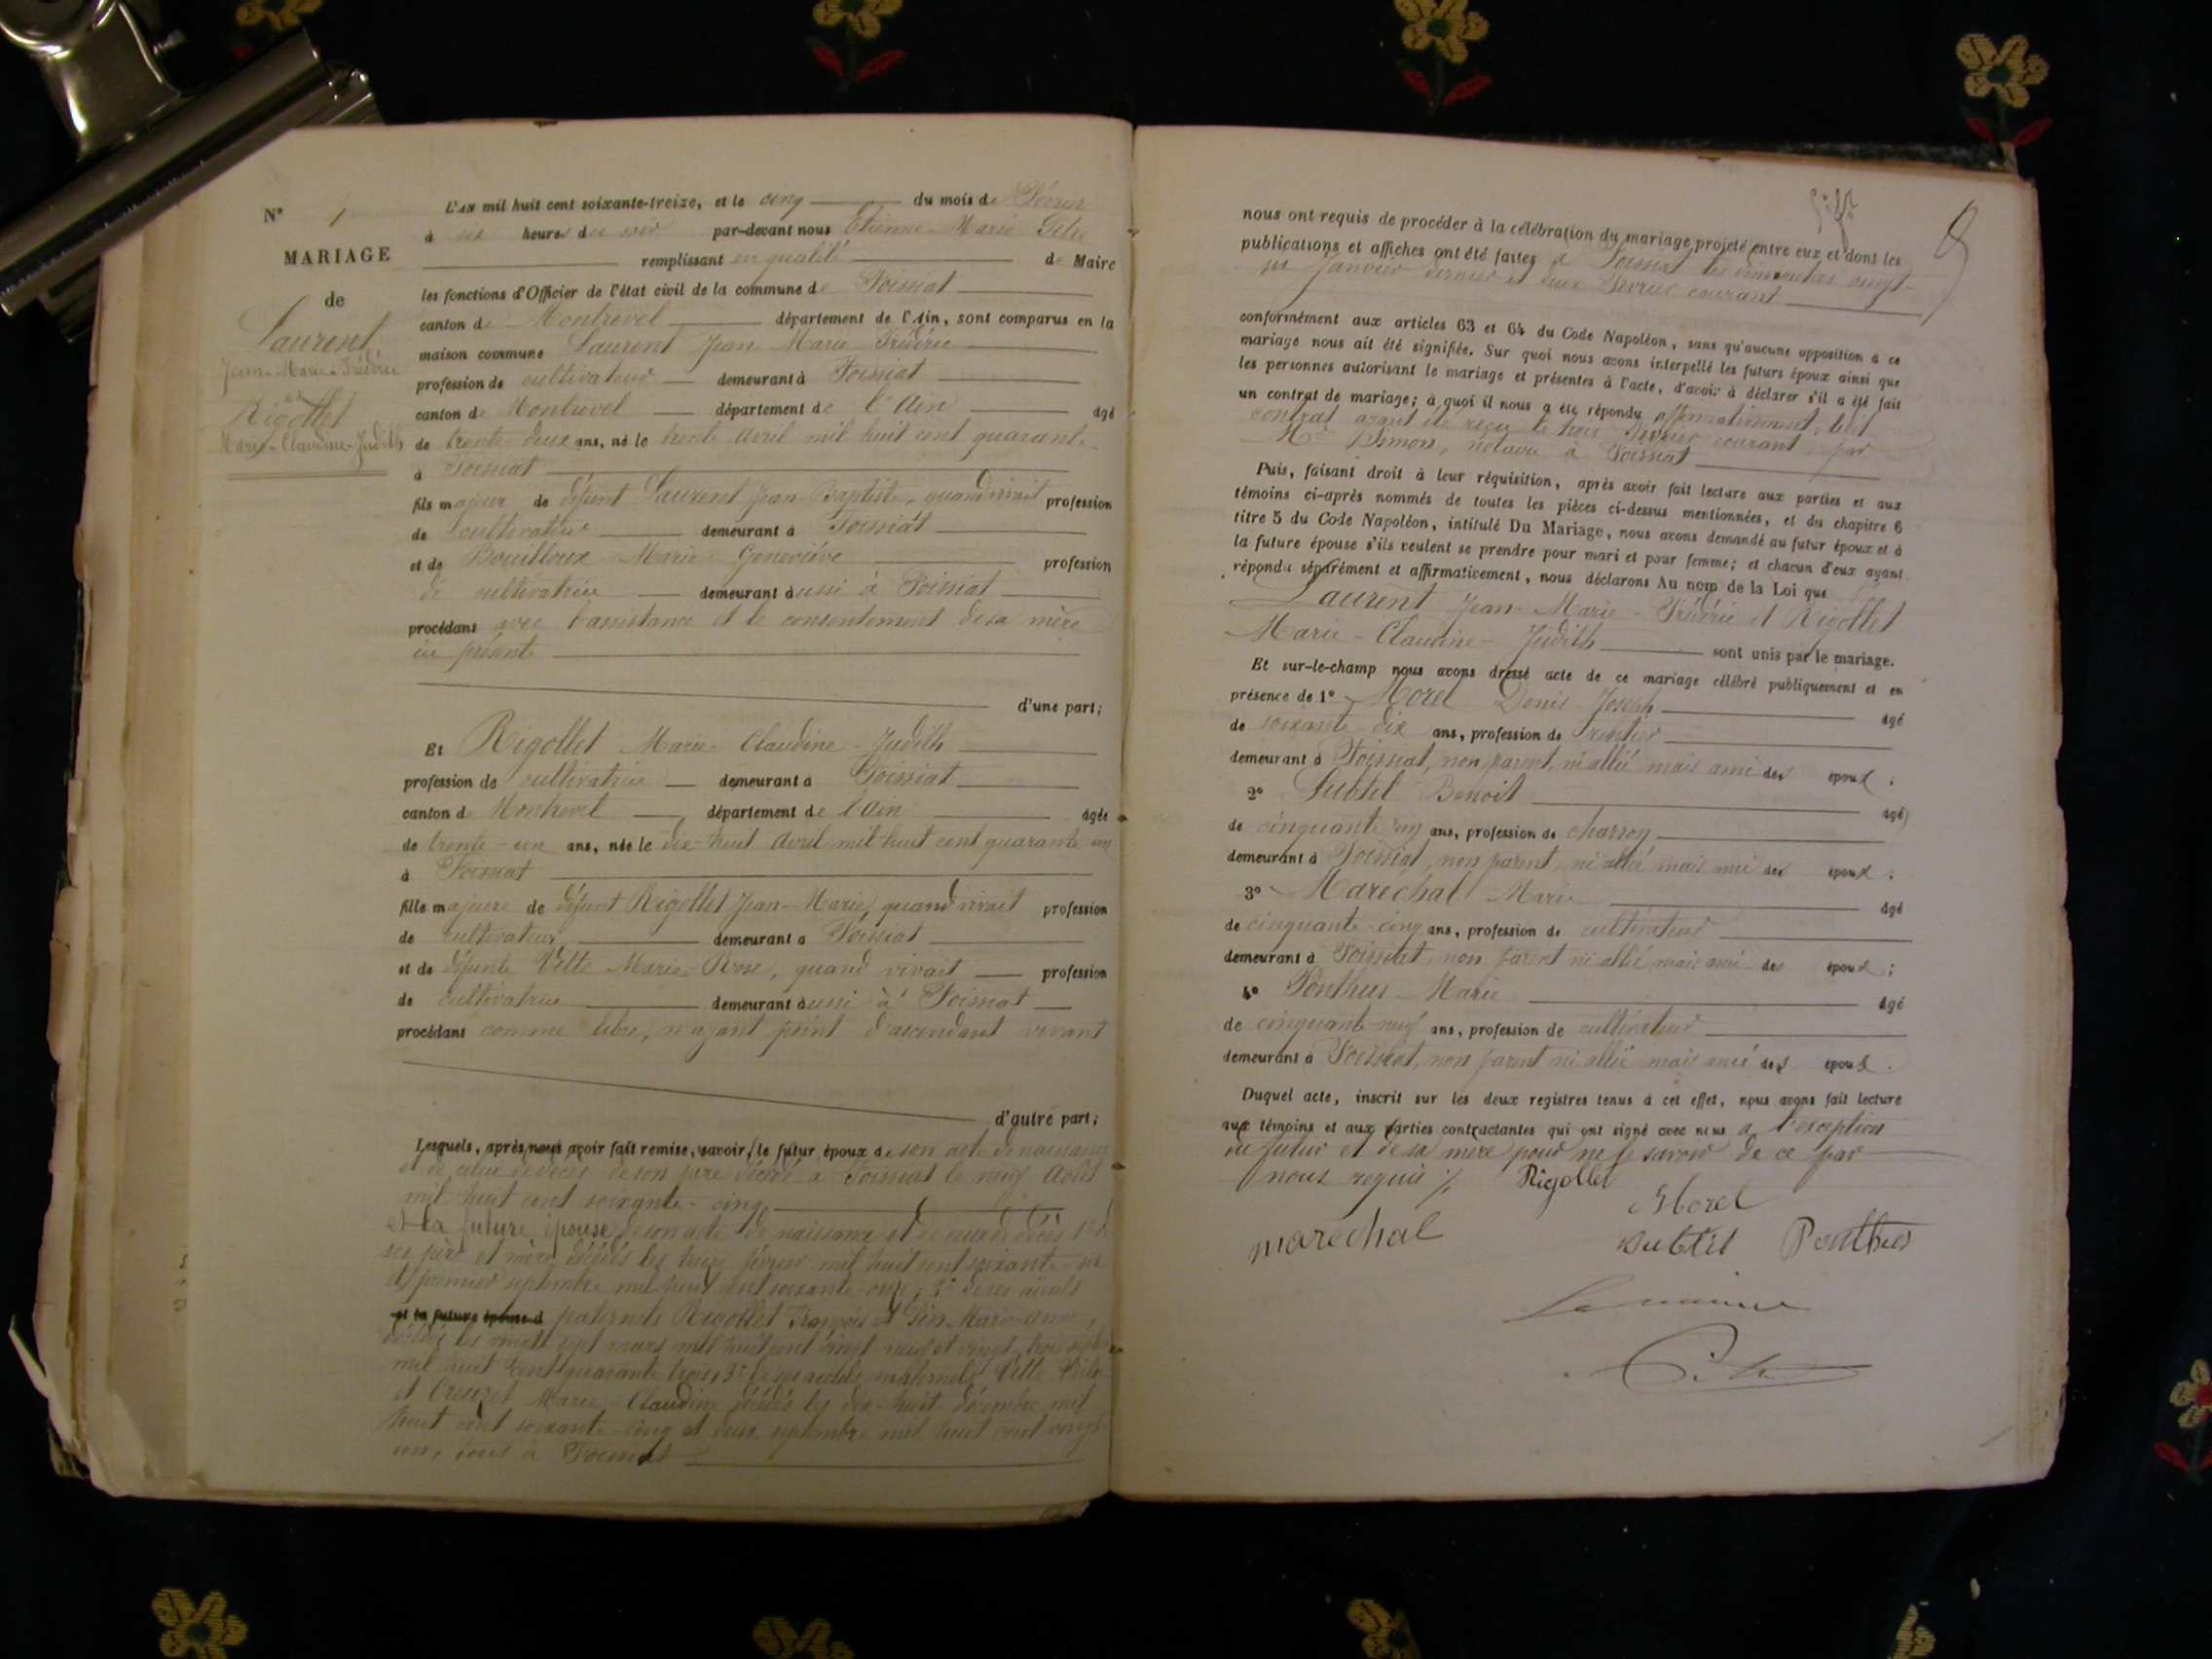 N° 1
MARIAGE
de
Laurent
Jean-Marie-Frédéric
et
Rigollet
Marie-Claudine-Judith
L'AN mil huit cent soixante-treize, et le cinq du mois de Février
à six heures du soir par-devant nous Etienne-Marie
remplissant en qualité de Maire
les fonctions d'Officier de l'état civil de la commune de Foissiat
canton de Montrevel département de l'Ain, sont comparus en la
maison commune Laurent Jean-Marie-Frédéric
profession de cultivateur demeurant à Foissiat
canton de Montrevel département de l'Ain âgé
de trente-deux ans, né le trente avril mil huit cent quarante
à Foissiat
fils majeur de défunt Laurent Jean-Baptiste, quand vivait profession
de cultivateur demeurant à Foissiat
et de Bouilloux Marie Geneviève profession
de cultivatrice demeurant aussi à Foissiat
procédant avec l'assistance et le consentement de sa mère
ici présente
d'une part;
Et Rigollet Marie-Claudine-Judith
profession de cultivatrice demeurant à Foissiat
canton de Montrevel département de l'Ain âgée
de trente-un ans, née le dix-huit avril mil huit cent quarante un
à Foissiat
fille majeure de défunt Rigollet Jean-Marie, quand vivait profession
de cultivateur demeurant à Foissiat
et de défunte Vitte Marie-Rose, quand vivait profession
de cultivatrice demeurant aussi à Foissiat
procédant comme libre, n'ayant point d'ascendant vivant
d'autre part;
Lesquels, après nous avoir fait remise, savoir, le futur époux de son acte de naissance
et de celui de décès de son père décédé à Foissiat le neuf Août
mil huit cent soixante-cinq
et la future épouse de son acte de naissance et de ceux de décès 1° de
ses père et mère décédés les treize février mil huit cent soixante-six
et premier septembre mil huit cent soixante-onze, 2° de ses aïeuls
et la future épouse d paternels Rigollet François et Marie-Anne,
décédés les vingt sept mars mil huit cent vingt-neuf et vingt-trois
mil huit cent quarante-trois, 3° de ses aïeuls maternels Vitte
et Marie-Claudine décédés les dix-huit décembre mil
huit cent soixante-cinq et deux septembre mil huit cent vingt
un, tous à Foissiat
nous ont requis de procéder à la célébration du mariage projeté entre eux et dont les
publications et affiches ont été faites à Foissiat les dimanches vingt-
six Janvier dernier et deux Février courant
conformément aux articles 63 et 64 du Code Napoléon, sans qu'aucune opposition à ce
mariage nous ait été signifiée. Sur quoi nous avons interpellé les futurs époux ainsi que
les personnes autorisant le mariage et présentes à l'acte, d'avoir à déclarer s'il a été fait
un contrat de mariage; à quoi il nous a été répondu affirmativement, ledit
contrat ayant été reçu le trois Février courant, par
Me notaire à Foissiat
Puis, faisant droit à leur réquisition, après avoir fait lecture aux parties et aux
témoins ci-après nommés de toutes les pièces ci-dessus mentionnées, et du chapitre 6
titre 5 du Code Napoléon, intitulé Du Mariage, nous avons demandé au futur époux et à
la future épouse s'ils veulent se prendre pour mari et pour femme; et chacun d'eux ayant
répondu séparément et affirmativement, nous déclarons Au nom de la Loi que
Laurent Jean-Marie-Frédéric et Rigollet
Marie-Claudine-Judith sont unis par le mariage.
Et sur-le-champ nous avons dressé acte de ce mariage célébré publiquement et en
présence de 1° Morel Denis Joseph âgé
de soixante-dix ans, profession de rentier
demeurant à Foissiat, non parent, ni allié mais ami des époux;
2° Subtil Benoit âgé
de cinquante ans, profession de charron
demeurant à Foissiat, non parent, ni allié mais ami des époux;
3° Maréchal Marie âgé
de cinquante-cinq ans, profession de cultivateur
demeurant à Foissiat, non parent ni allié mais ami des époux;
4° Ponthus Marie âgé
de cinquante-neuf ans, profession de cultivateur
demeurant à Foissiat, non parent ni allié mais ami des époux.
Duquel acte, inscrit sur les deux registres tenus à cet effet, nous avons fait lecture
aux témoins et aux parties contractantes qui ont signé avec nous à l'exception
du futur et de sa mère pour ne le savoir de ce par
nous requis
Rigollet
Morel
marechal
Subtil
Ponthus
Le maire